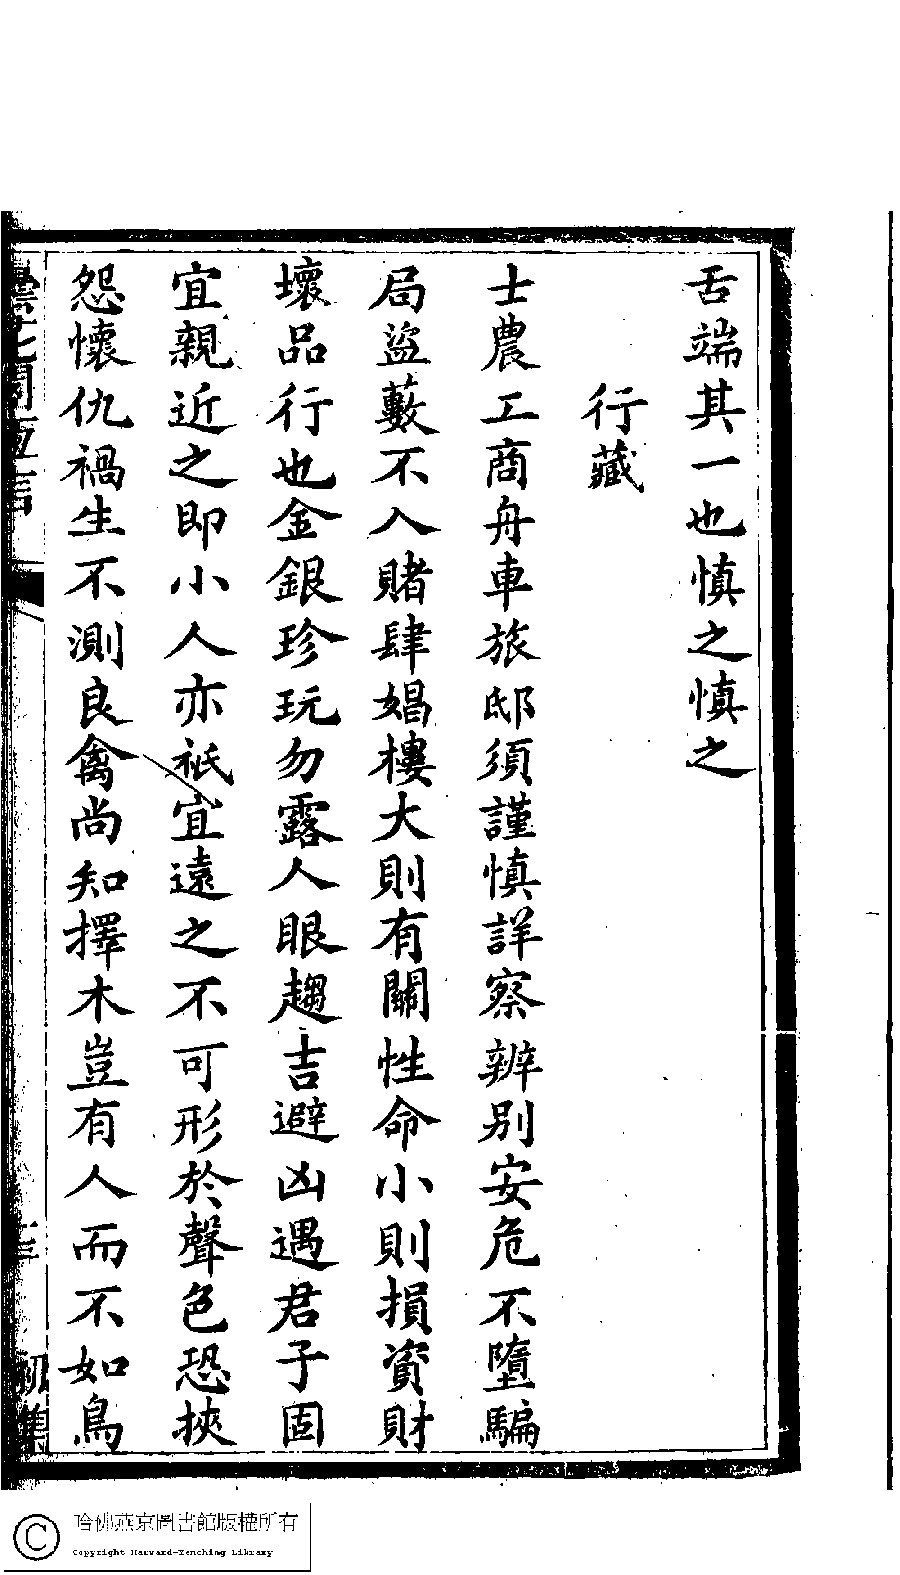 舌端其一也慎之慎之
行藏
士農工商舟車旅邸須謹慎詳察辨別安危不墮騙
局盜藪不入賭肆娼樓大則有關性命小則損資財
壞品行也金銀珍玩勿露人眼趨吉避凶遇君子固
宜親近之即小人亦祇宜遠之不可形於聲色恐挾
怨懷仇禍生不測良禽尚知擇木豈有人而不如鳥
初集
哈佛燕京圖書館版權所有
Copyright Harvard-Yenching Library